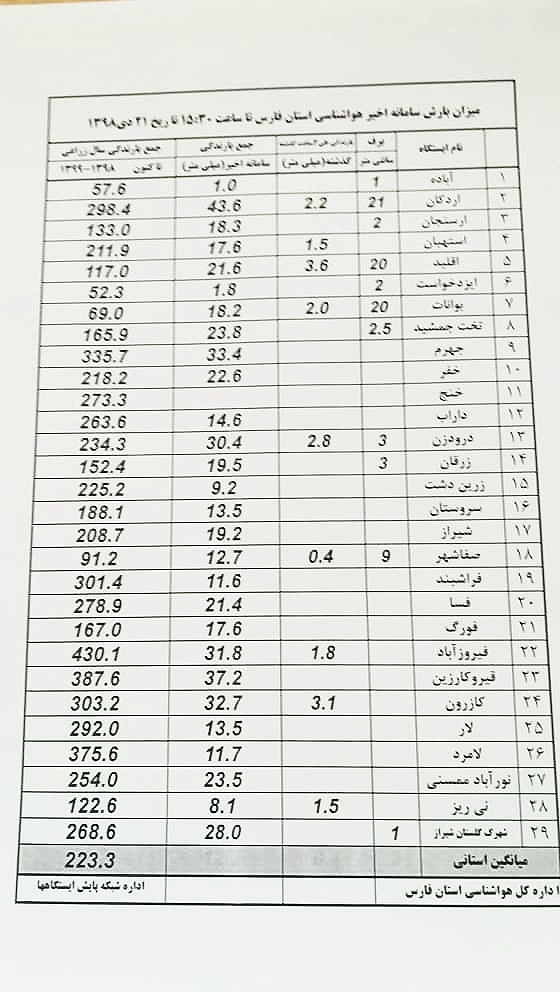 میزان بارش سامانه اخیر هواشناسی استان فارس تا ساعت ۱۵:۳۰ تا ریخ ۲۱ دی ۱۳۹۸
نام ایستگاه برف بارندگی جمع بارندگی جمع بارندگی سال زراعی
سانتی متر گذشته(میلی متر) سامانه اخیر(میلی متر) تا کنون ۱۳۹۸-۱۳۹۹
۱ آباده 1 1.0 57.6
۲ اردکان 21 2.2 43.6 298.4
۳ ارسنجان 2 18.3 133.0
۴ استهبان 1.5 17.6 211.9
۵ اقلید 20 3.6 21.6 117.0
۶ ایزدخواست 2 1.8 52.3
۷ بوانات 20 2.0 18.2 69.0
۸ تخت جمشید 2.5 23.8 165.9
۹ جهرم 33.4 335.7
۱۰ خفر 22.6 218.2
۱۱ خنج 273.3
۱۲ داراب 14.6 263.6
۱۳ درودزن 3 2.8 30.4 234.3
۱۴ زرقان 3 19.5 152.4
۱۵ زرین دشت 9.2 225.2
۱۶ سروستان 13.5 188.1
۱۷ شیراز 19.2 208.7
۱۸ صفاشهر 9 0.4 12.7 91.2
۱۹ فراشبند 11.6 301.4
۲۰ فسا 21.4 278.9
۲۱ فورگ 17.6 167.0
۲۲ فیروزآباد 1.8 31.8 430.1
۲۳ قیروکارزین 37.2 387.6
۲۴ کازرون 3.1 32.7 303.2
۲۵ لار 13.5 292.0
۲۶ لامرد 11.7 375.6
۲۷ نورآباد ممسنی 23.5 254.0
۲۸ نی ریز 1.5 8.1 122.6
۲۹ شهرک گلستان شیراز 1 28.0 268.6
میانگین استانی 223.3
ا داره کل هواشناسی استان فارس اداره شبکه پایش ایستگاهها